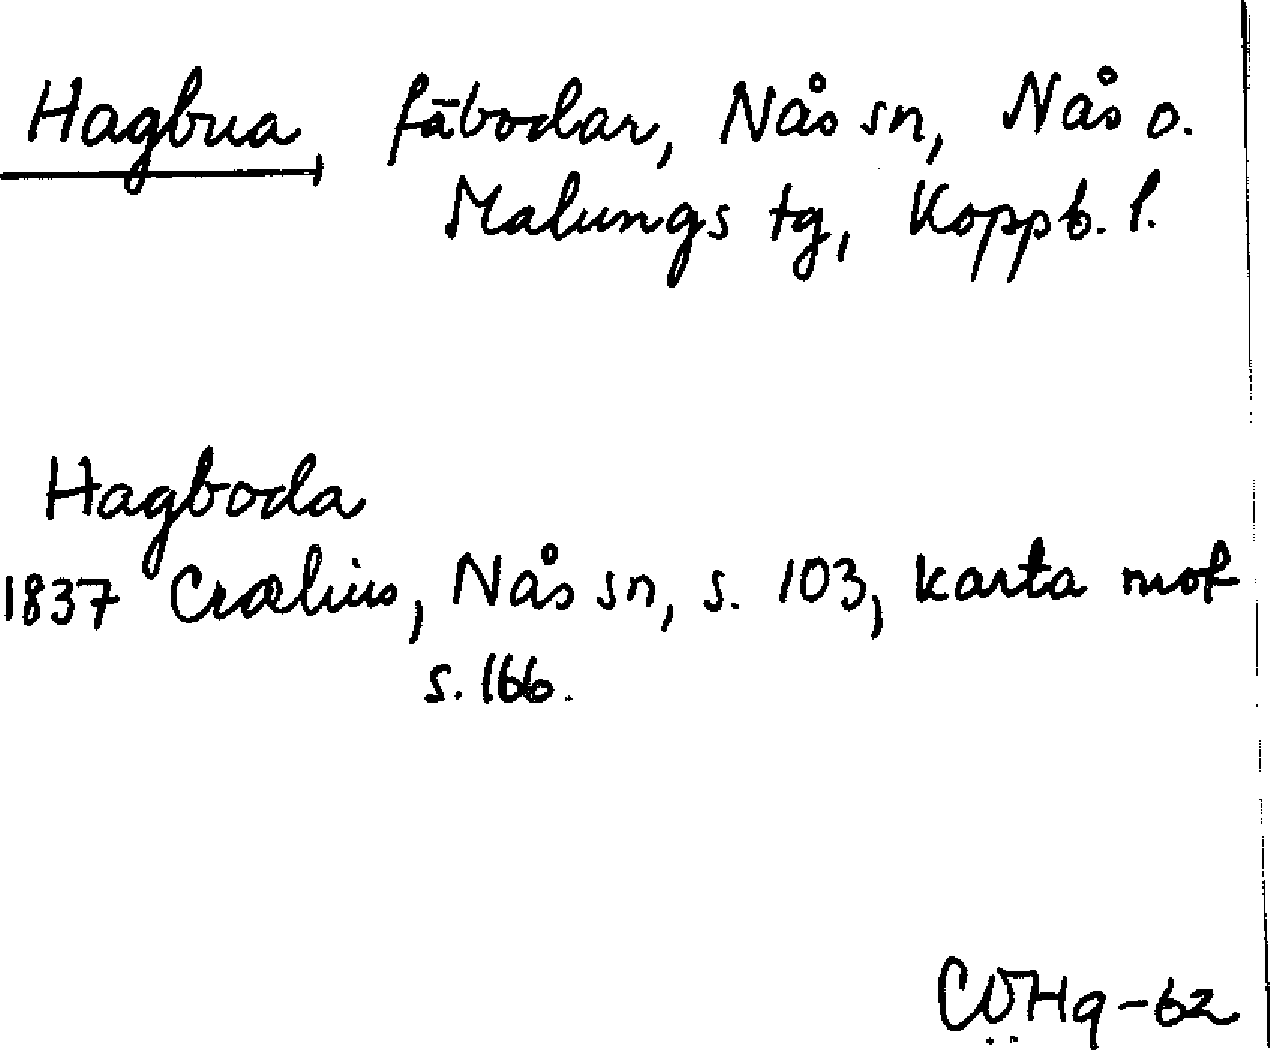 Hagbua fäbodar, Nås sn, Nås o.
Malungs tg, Koppb. l.
Hagboda
1837 Crælius, Nås sn, s. 103, karta mot
s. 166.